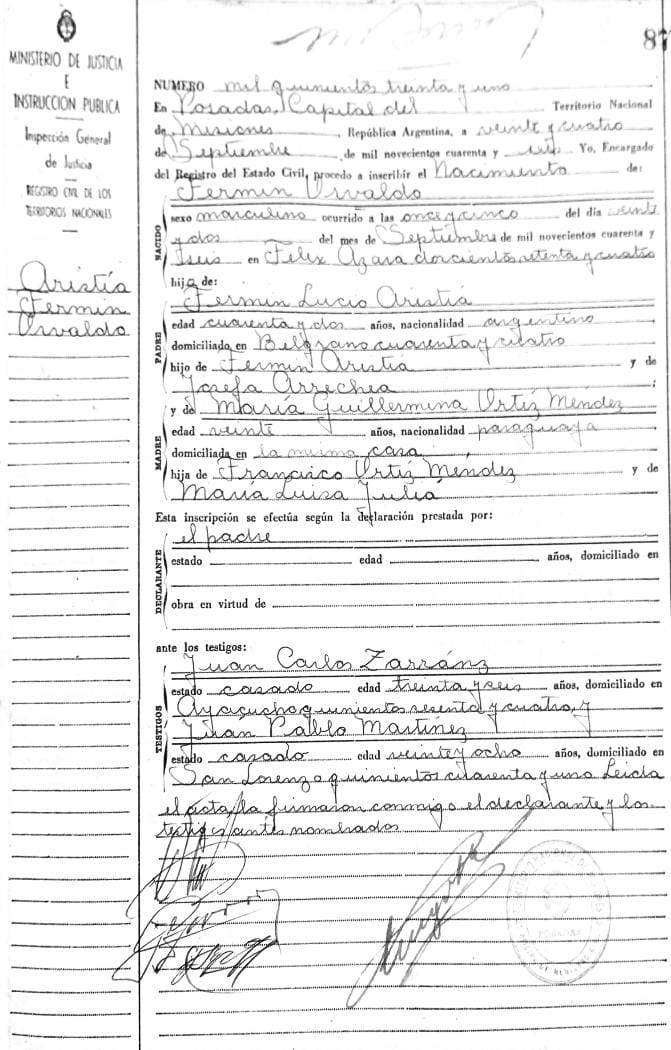 87
MINISTERIO DE JUSTICIA
E
INSTRUCCION PUBLICA
Inspección General
de Justicia
REGISTRO CIVIL DE LOS
TERRITORIOS NACIONALES
Aristía
Fermin
Osvaldo
NUMERO mil quinientos treinta y uno
En Posadas, Capital del Territorio Nacional
de Misiones, República Argentina, a veinte y cuatro
de Septiembre, de mil novecientos cuarenta y seis Yo, Encargado
del Registro del Estado Civil, procedo a inscribir el Nacimiento de:
Fermin Osvaldo
NACIDO
sexo masculino ocurrido a las once y cinco del día veinte
y dos del mes de Septiembre de mil novecientos cuarenta y
seis en Felix Azara doscientos setenta y cuatro
hijo de:
PADRE
Fermin Lucio Aristía
edad cuarenta y dos años, nacionalidad argentino
domiciliado en Belgrano cuarenta y cuatro
hijo de Fermin Aristía y de
Josefa Arrechea;
MADRE
y de María Guillermina Ortíz Méndez
edad veinte años, nacionalidad paraguaya
domiciliada en la misma casa
hija de Francisco Ortíz Méndez y de
María Luisa Juliá
Esta inscripción se efectúa según la declaración prestada por:
DECLARANTE
el padre
estado edad años, domiciliado en
obra en virtud de
ante los testigos:
TESTIGOS
Juan Carlos Zarránz
estado casado edad treinta y seis años, domiciliado en
Ayacucho quinientos sesenta y cuatro, y
Juan Pablo Martínez
estado casado edad veinte y ocho años, domiciliado en
San Lorenzo quinientos cuarenta y uno Leída
el acta, la firmaron conmigo el declarante y los
testigos antes nombrados
POSADAS